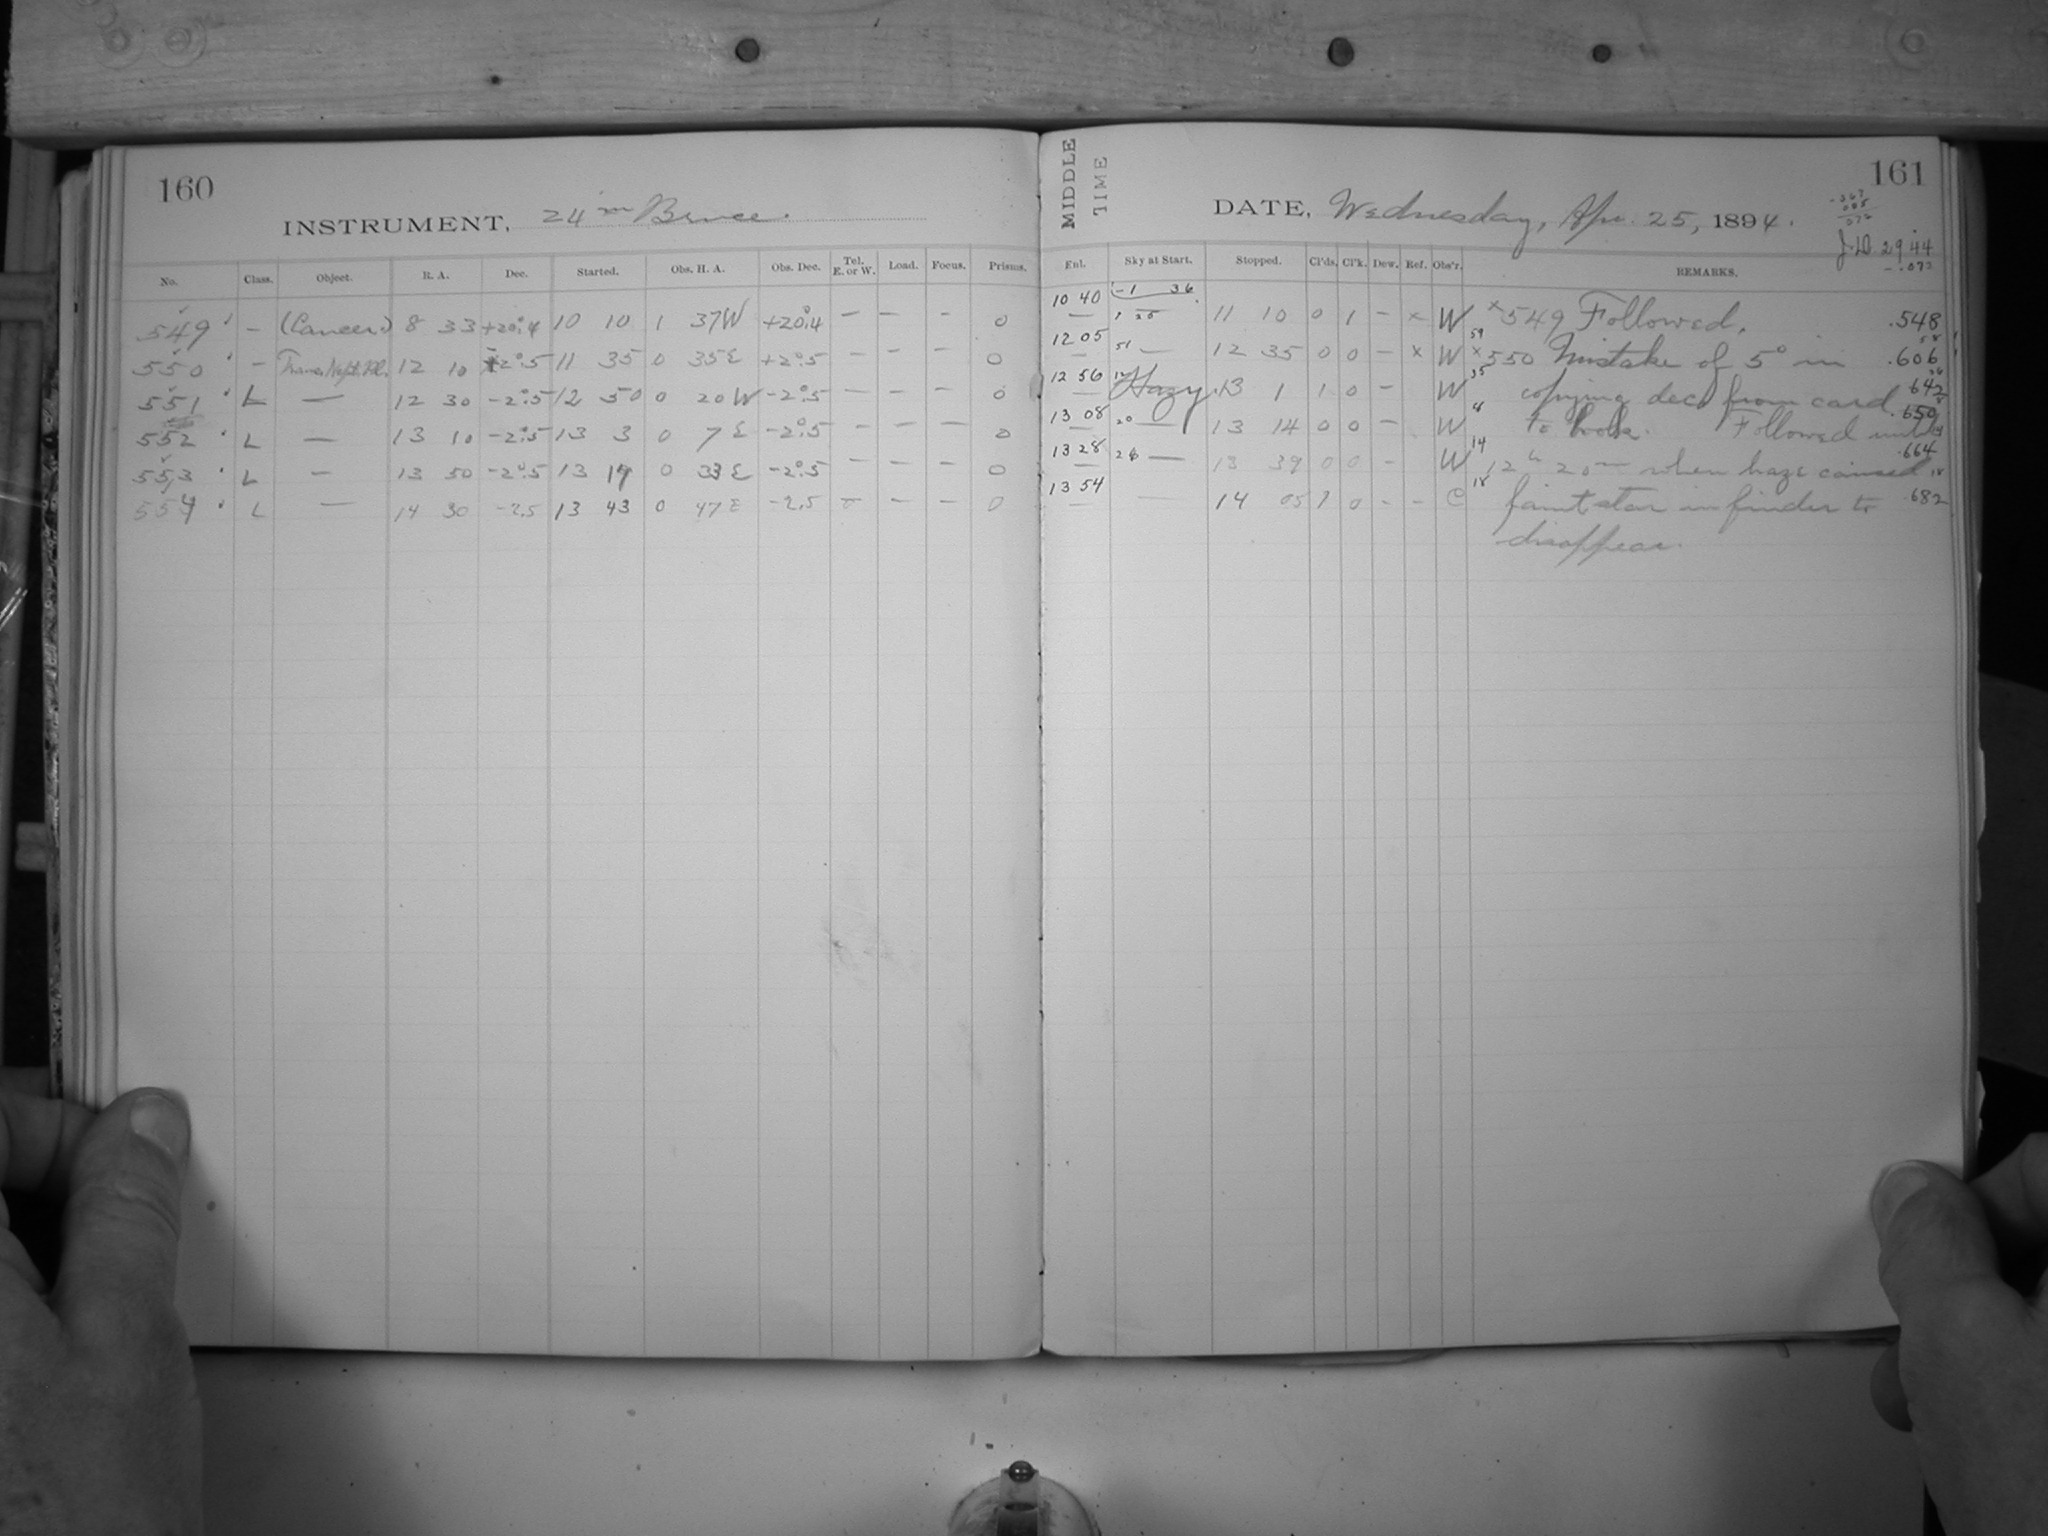 160
INSTRUMENT, 24 in Bruce.
No. Class. Object. R. A. Dec. Started. Obs. H. A. Obs. Dec. Tel. E. or W. Load. Focus. Prisms.
549 — (Cancer) 8 33 +20°.4 10 10 1 37W +20°.4 — — — 0
550 — Trans. Nept. Pl. 12 10 +2°.5 11 35 0 35E +2°.5 — — — 0
551 L — 12 30 -2°.5 12 50 0 20W -2°.5 — — — 0
552 L — 13 10 -2°.5 13 3 0 7E -2°.5 — — — 0
553 L — 13 50 -2°.5 13 17 0 33E -2°.5 — — — 0
554 L — 14 30 -2.5 13 43 0 47E -2.5 — — — 0
MIDDLE
TIME
161
DATE, Wednesday, Apr. 25, 1894.
J.D. 2944
-.073
Ent. Sky at Start. Stopped. Cl'ds. Cl'k. Dew. Ref. Obs'r. REMARKS.
10 40 -1 36 11 10 0 1 — × W ×549 Followed. .548
12 05 51 — 12 35 0 0 — × W ×550 Mistake of 5° in .606
12 56 Hazy 13 1 1 0 — W copying dec. from card .642
13 08 20 — 13 14 0 0 — W to book. Followed until .650
13 28 26 — 13 39 0 0 — W 12h 20m when haze caused .664
13 54 — 14 05 1 0 — — C faint star in finder to .682
disappear.